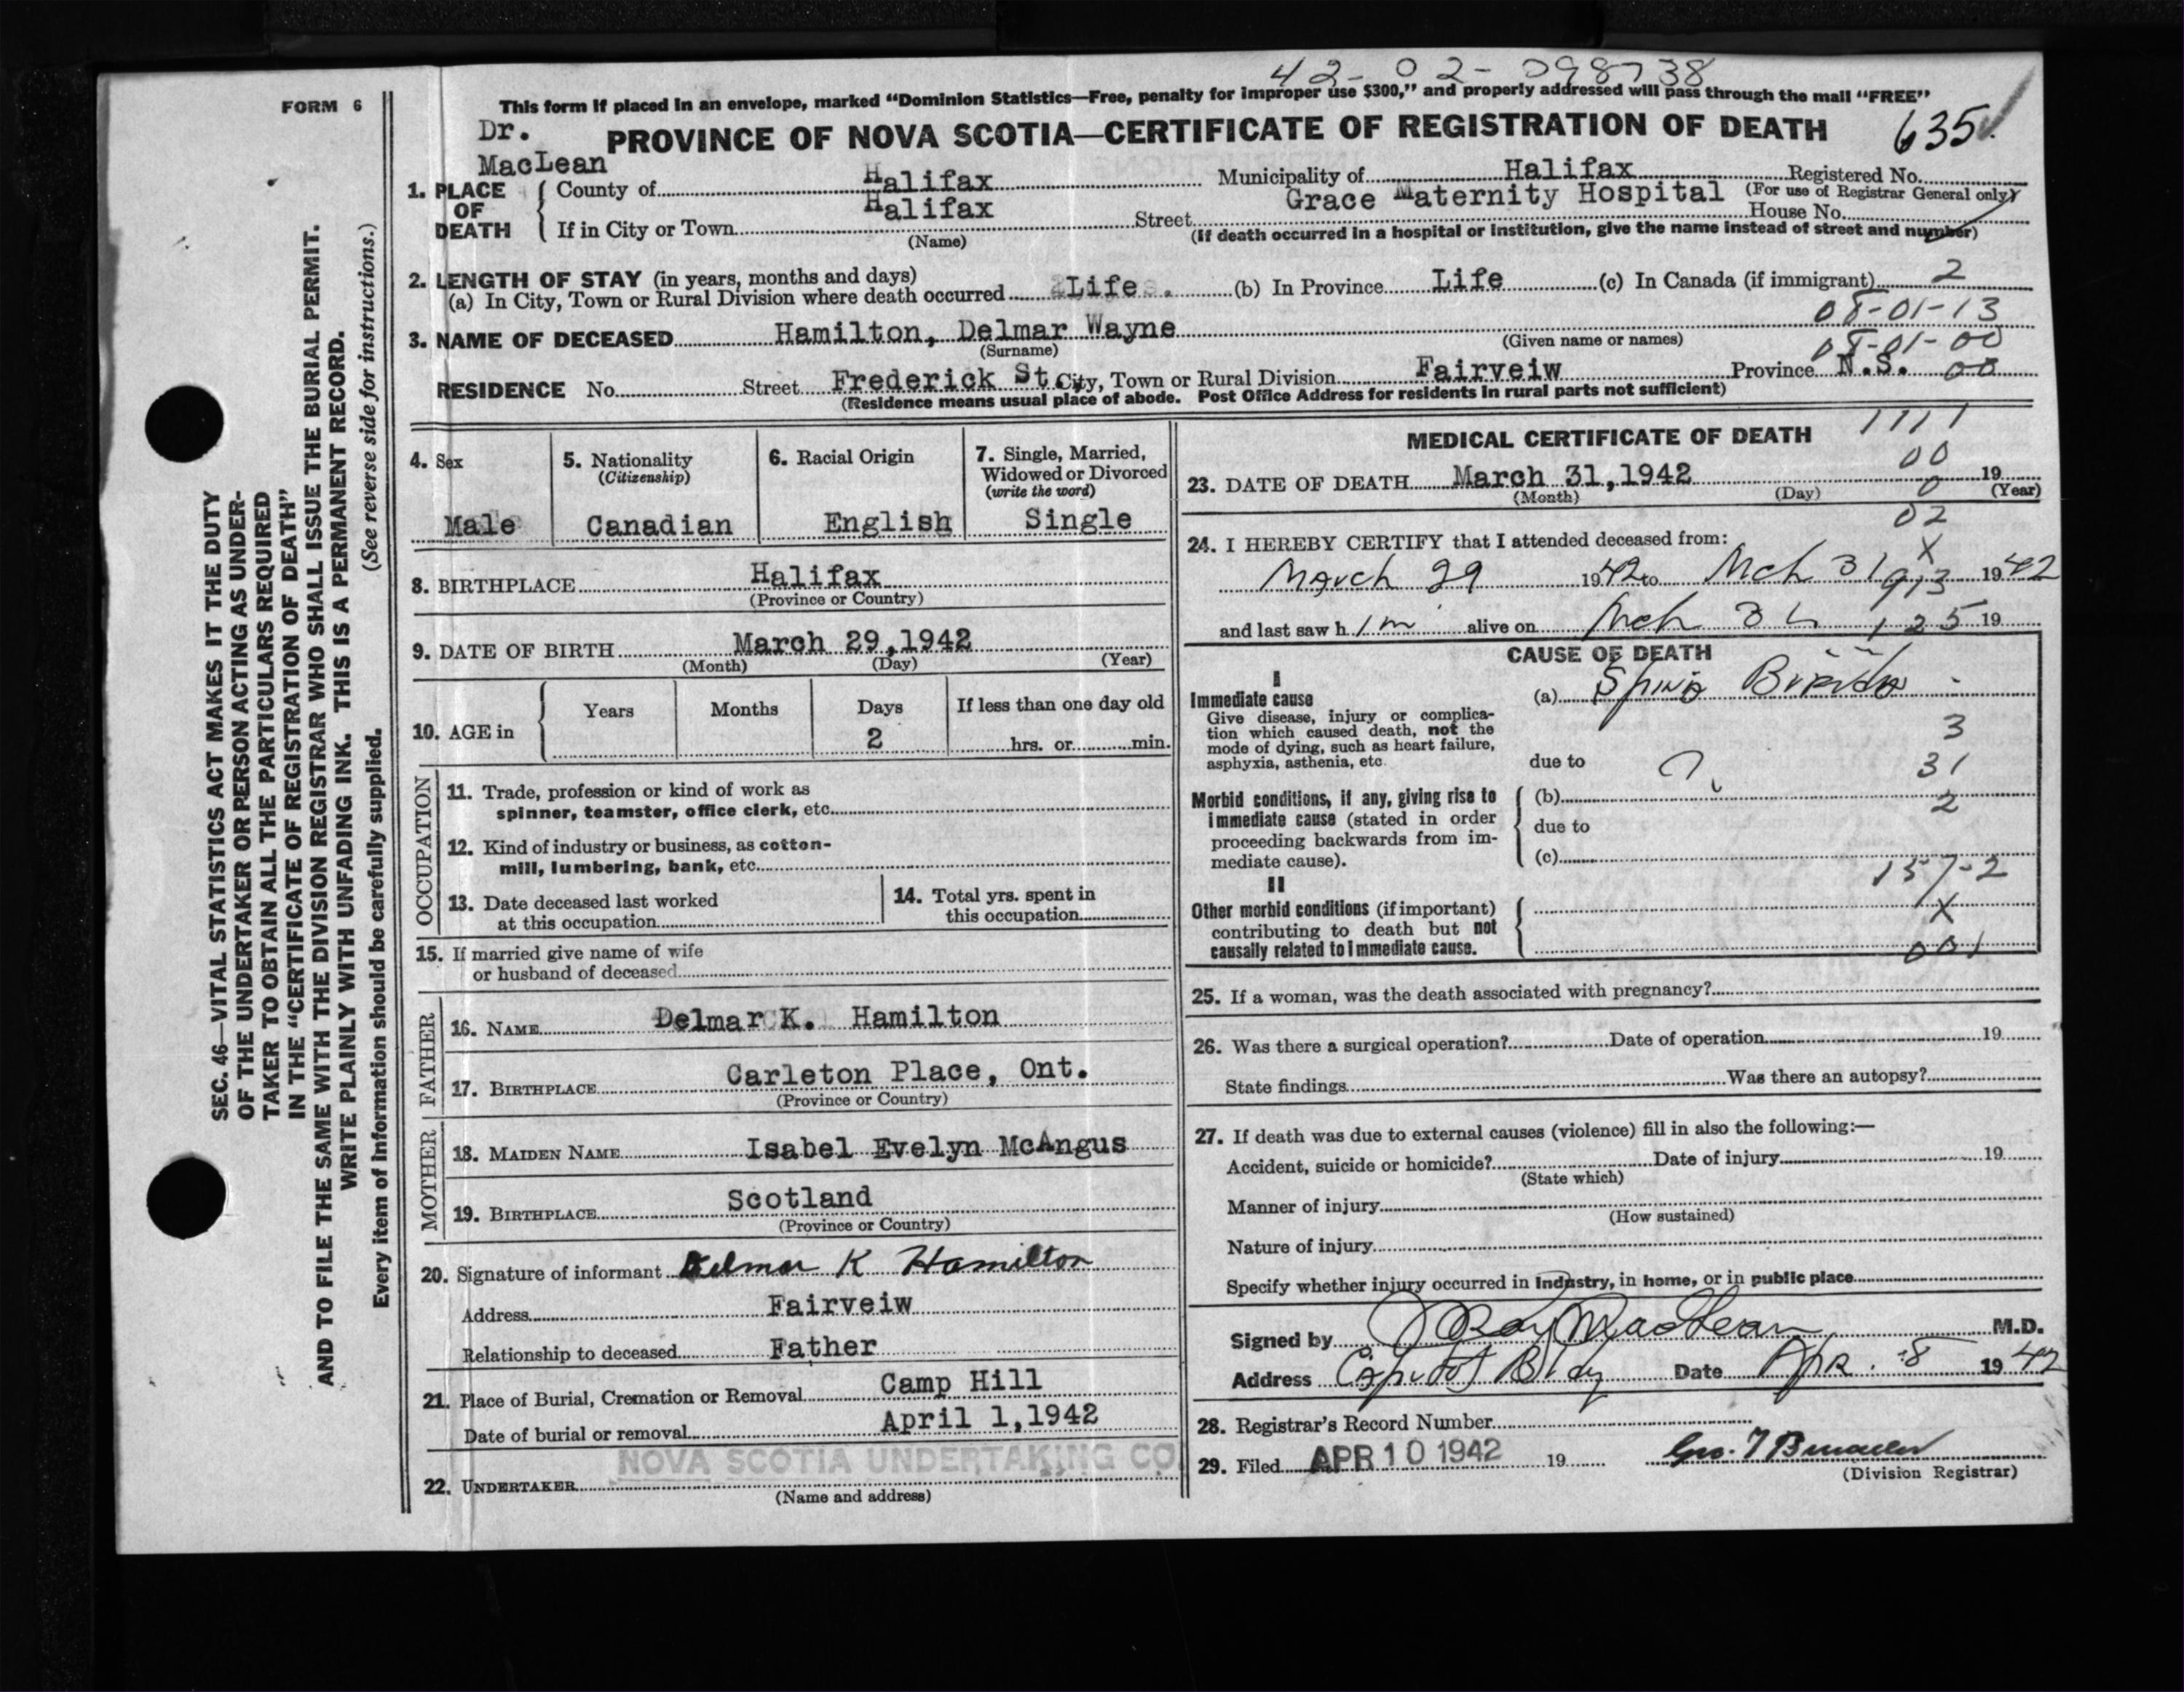 42-02-098738
FORM 6
This form if placed in an envelope, marked “Dominion Statistics—Free, penalty for improper use $300,” and properly addressed will pass through the mail “FREE”
Dr.
MacLean
PROVINCE OF NOVA SCOTIA—CERTIFICATE OF REGISTRATION OF DEATH
635
1. PLACE OF DEATH
County of Halifax Municipality of Halifax Registered No.
(For use of Registrar General only)
If in City or Town Halifax Street Grace Maternity Hospital House No.
(Name) (If death occurred in a hospital or institution, give the name instead of street and number)
2. LENGTH OF STAY (in years, months and days)
(a) In City, Town or Rural Division where death occurred Life. (b) In Province Life (c) In Canada (if immigrant) 2
08-01-13
3. NAME OF DECEASED Hamilton, Delmar Wayne
(Surname) (Given name or names)
08-01-00
RESIDENCE No. Street Frederick St. City, Town or Rural Division Fairveiw Province N.S. 00
(Residence means usual place of abode. Post Office Address for residents in rural parts not sufficient)
4. Sex
Male
5. Nationality
(Citizenship)
Canadian
6. Racial Origin
English
7. Single, Married,
Widowed or Divorced
(write the word)
Single
8. BIRTHPLACE Halifax
(Province or Country)
9. DATE OF BIRTH March 29, 1942
(Month) (Day) (Year)
10. AGE in
Years Months Days If less than one day old
2 hrs. or min.
OCCUPATION
11. Trade, profession or kind of work as
spinner, teamster, office clerk, etc.
12. Kind of industry or business, as cotton-
mill, lumbering, bank, etc.
13. Date deceased last worked
at this occupation
14. Total yrs. spent in
this occupation
15. If married give name of wife
or husband of deceased
FATHER
16. NAME Delmar K. Hamilton
17. BIRTHPLACE Carleton Place, Ont.
(Province or Country)
MOTHER
18. MAIDEN NAME Isabel Evelyn McAngus
19. BIRTHPLACE Scotland
(Province or Country)
20. Signature of informant Delmar K Hamilton
Address Fairveiw
Relationship to deceased Father
21. Place of Burial, Cremation or Removal Camp Hill
Date of burial or removal April 1, 1942
NOVA SCOTIA UNDERTAKING CO
22. UNDERTAKER
(Name and address)
MEDICAL CERTIFICATE OF DEATH
1111
00
23. DATE OF DEATH March 31, 1942 19
(Month) (Day) (Year)
0
02
24. I HEREBY CERTIFY that I attended deceased from:
X
March 29 1942 to Mch 31 1942
913
and last saw h im alive on Mch 19
125
CAUSE OF DEATH
I
Immediate cause
Give disease, injury or complica-
tion which caused death, not the
mode of dying, such as heart failure,
asphyxia, asthenia, etc.
(a) Spina Bifida
3
due to ?
31
Morbid conditions, if any, giving rise to
immediate cause (stated in order
proceeding backwards from im-
mediate cause).
(b)
2
due to
(c)
157-2
II
Other morbid conditions (if important)
contributing to death but not
causally related to immediate cause.
X
001
25. If a woman, was the death associated with pregnancy?
26. Was there a surgical operation? Date of operation 19
State findings Was there an autopsy?
27. If death was due to external causes (violence) fill in also the following:—
Accident, suicide or homicide? Date of injury 19
(State which)
Manner of injury
(How sustained)
Nature of injury
Specify whether injury occurred in industry, in home, or in public place
Signed by MacLean M.D.
Address Capitol Bldg Date Apr. 8 1942
28. Registrar’s Record Number
29. Filed APR 10 1942 19
(Division Registrar)
SEC. 46—VITAL STATISTICS ACT MAKES IT THE DUTY
OF THE UNDERTAKER OR PERSON ACTING AS UNDER-
TAKER TO OBTAIN ALL THE PARTICULARS REQUIRED
IN THE “CERTIFICATE OF REGISTRATION OF DEATH”
AND TO FILE THE SAME WITH THE DIVISION REGISTRAR WHO SHALL ISSUE THE BURIAL PERMIT.
WRITE PLAINLY WITH UNFADING INK. THIS IS A PERMANENT RECORD.
(See reverse side for instructions.)
Every item of information should be carefully supplied.